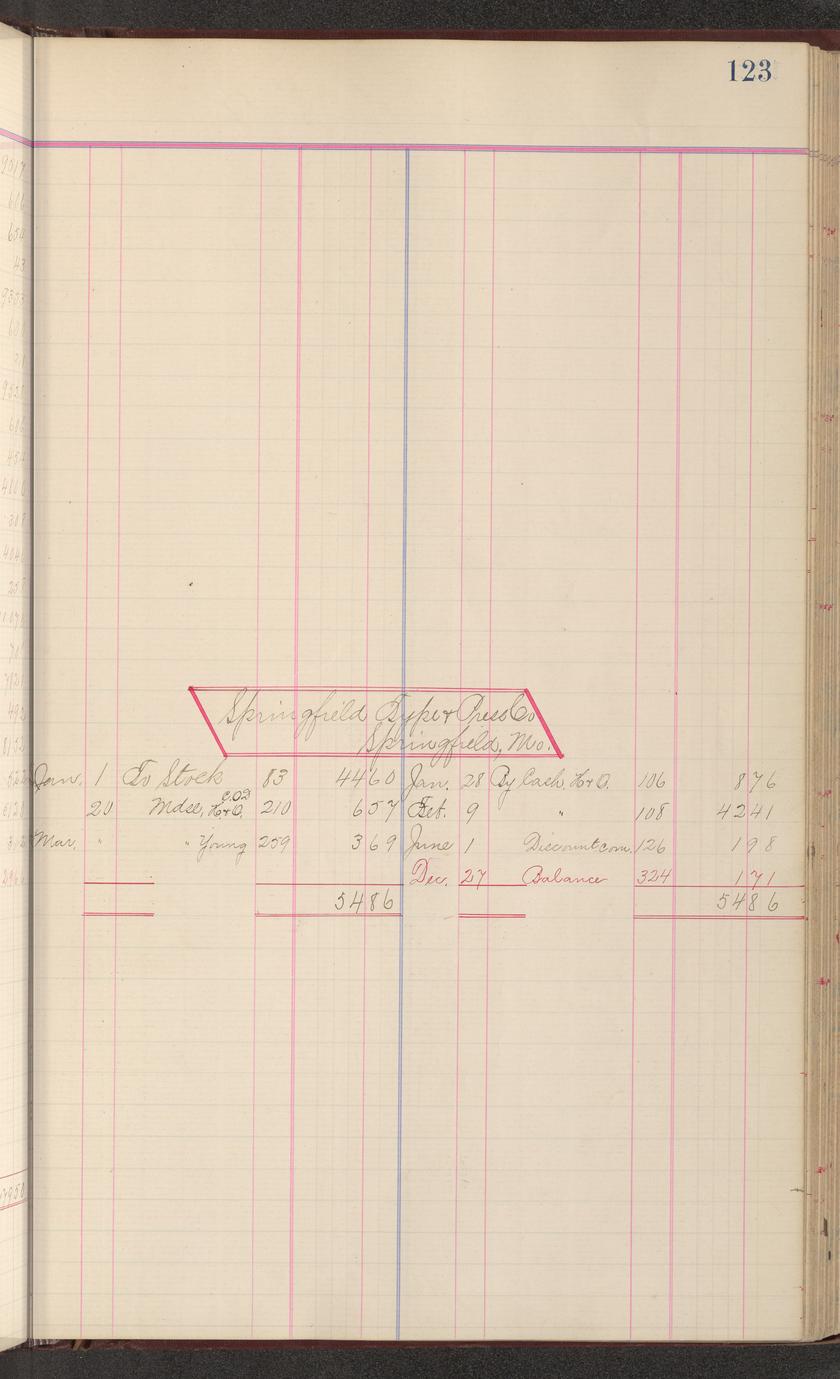 123
Springfield Type & Press Co
Springfield, Mo.
Jan. 1 To Stock 83 4460 Jan. 28 By Cash. H&O. 106 876
20 Mdse, H&O. C.O.D 210 657 Feb. 9 " 108 4241
Mar. " " Young 259 369 June 1 Discount com. 126 198
Dec. 27 Balance 324 171
5486 5486